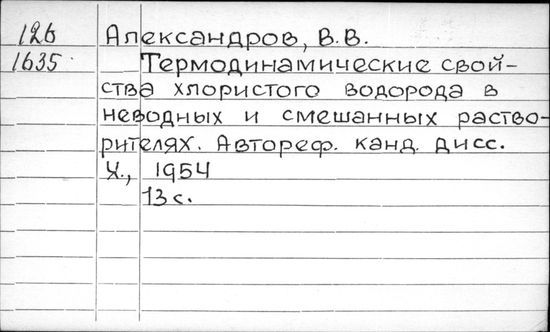 126 Александров, В.В.
1635 Термодинамические свой-
ства хлористого водорода в
неводных и смешанных раство-
рителях. Автореф. канд. дисс.
Х., 1954
13 с.